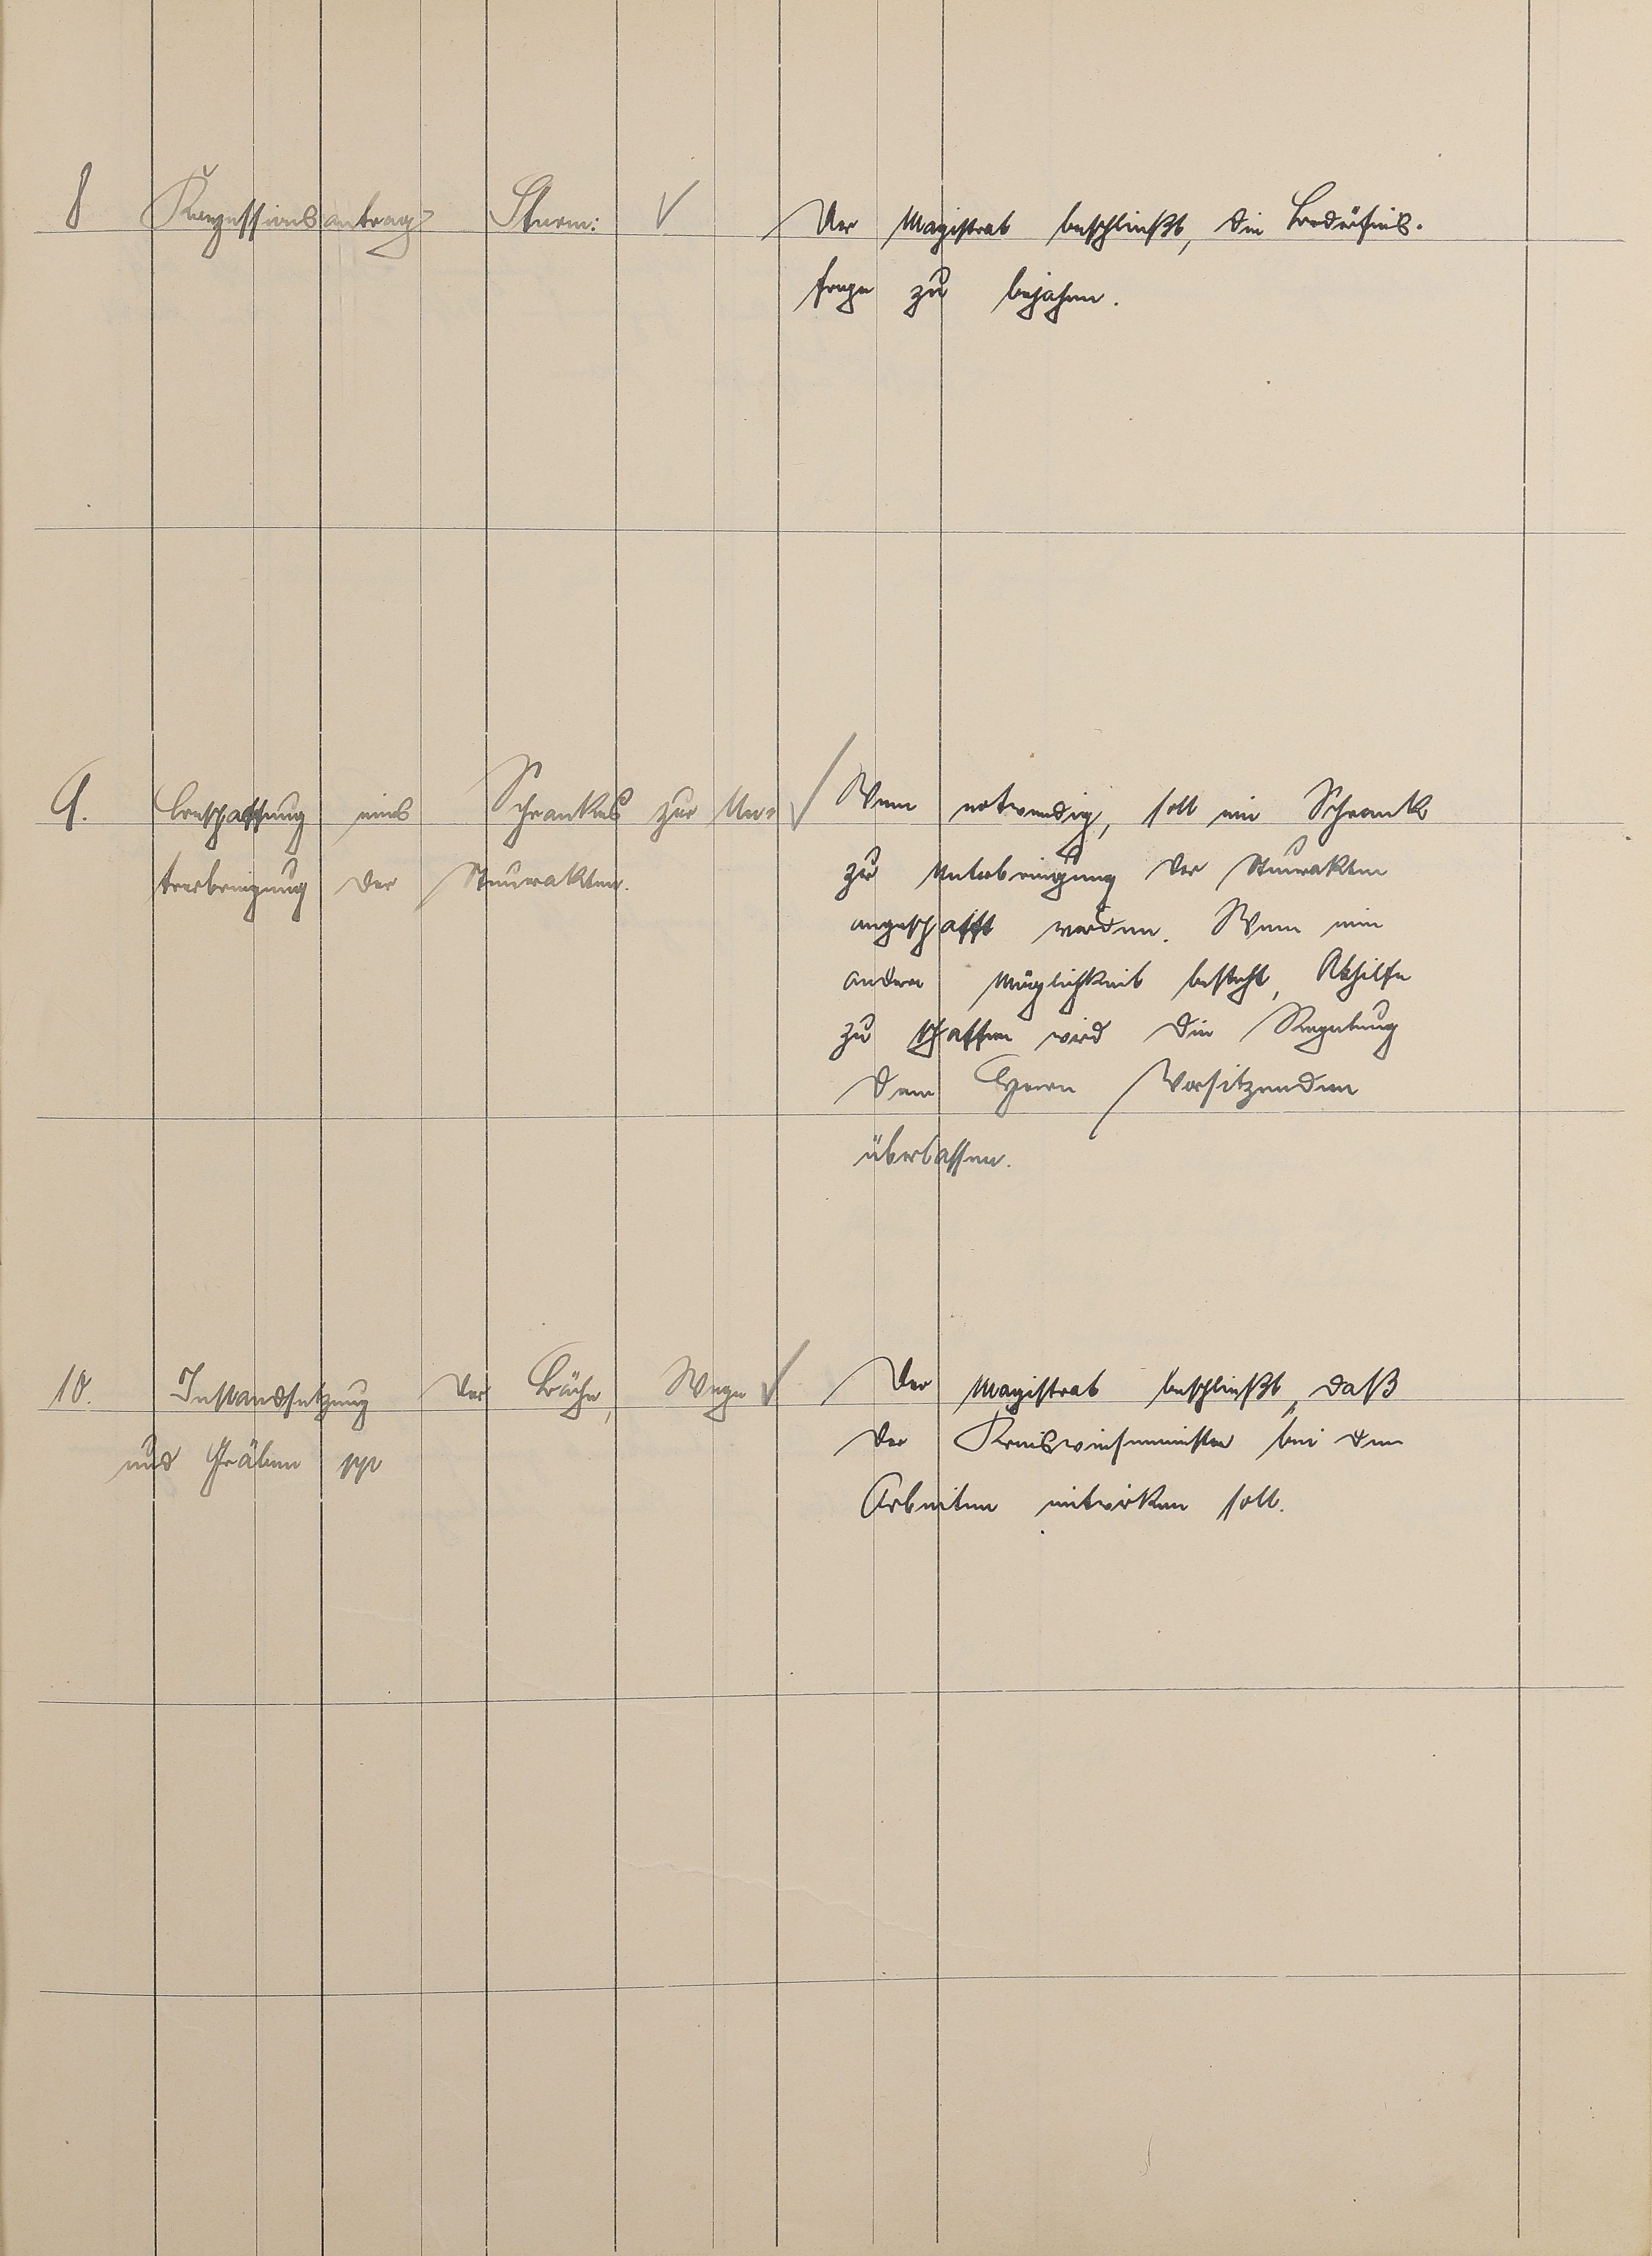 8 Konzessionsantrag Sturm: ✓
Der Magistrat beschließt, die Bedürfnis-
frage zu bejahen.
9. Beschaffung eines Schrankes zur Un= ✓
terbringung der Steuerakten.
Wenn notwendig, soll ein Schrank
zur Unterbringung der Steuerakten
angeschafft werden. Wenn eine
andere Möglichkeit besteht, Abhilfe
zu schaffen wird die Regelung
dem Herrn Vorsitzenden
überlassen.
10. Instandsetzung der Bäche, Wege ✓
und Gräben pp
Der Magistrat beschließt, daß
der Kreiswiesenmeister bei den
Arbeiten mitwirken soll.